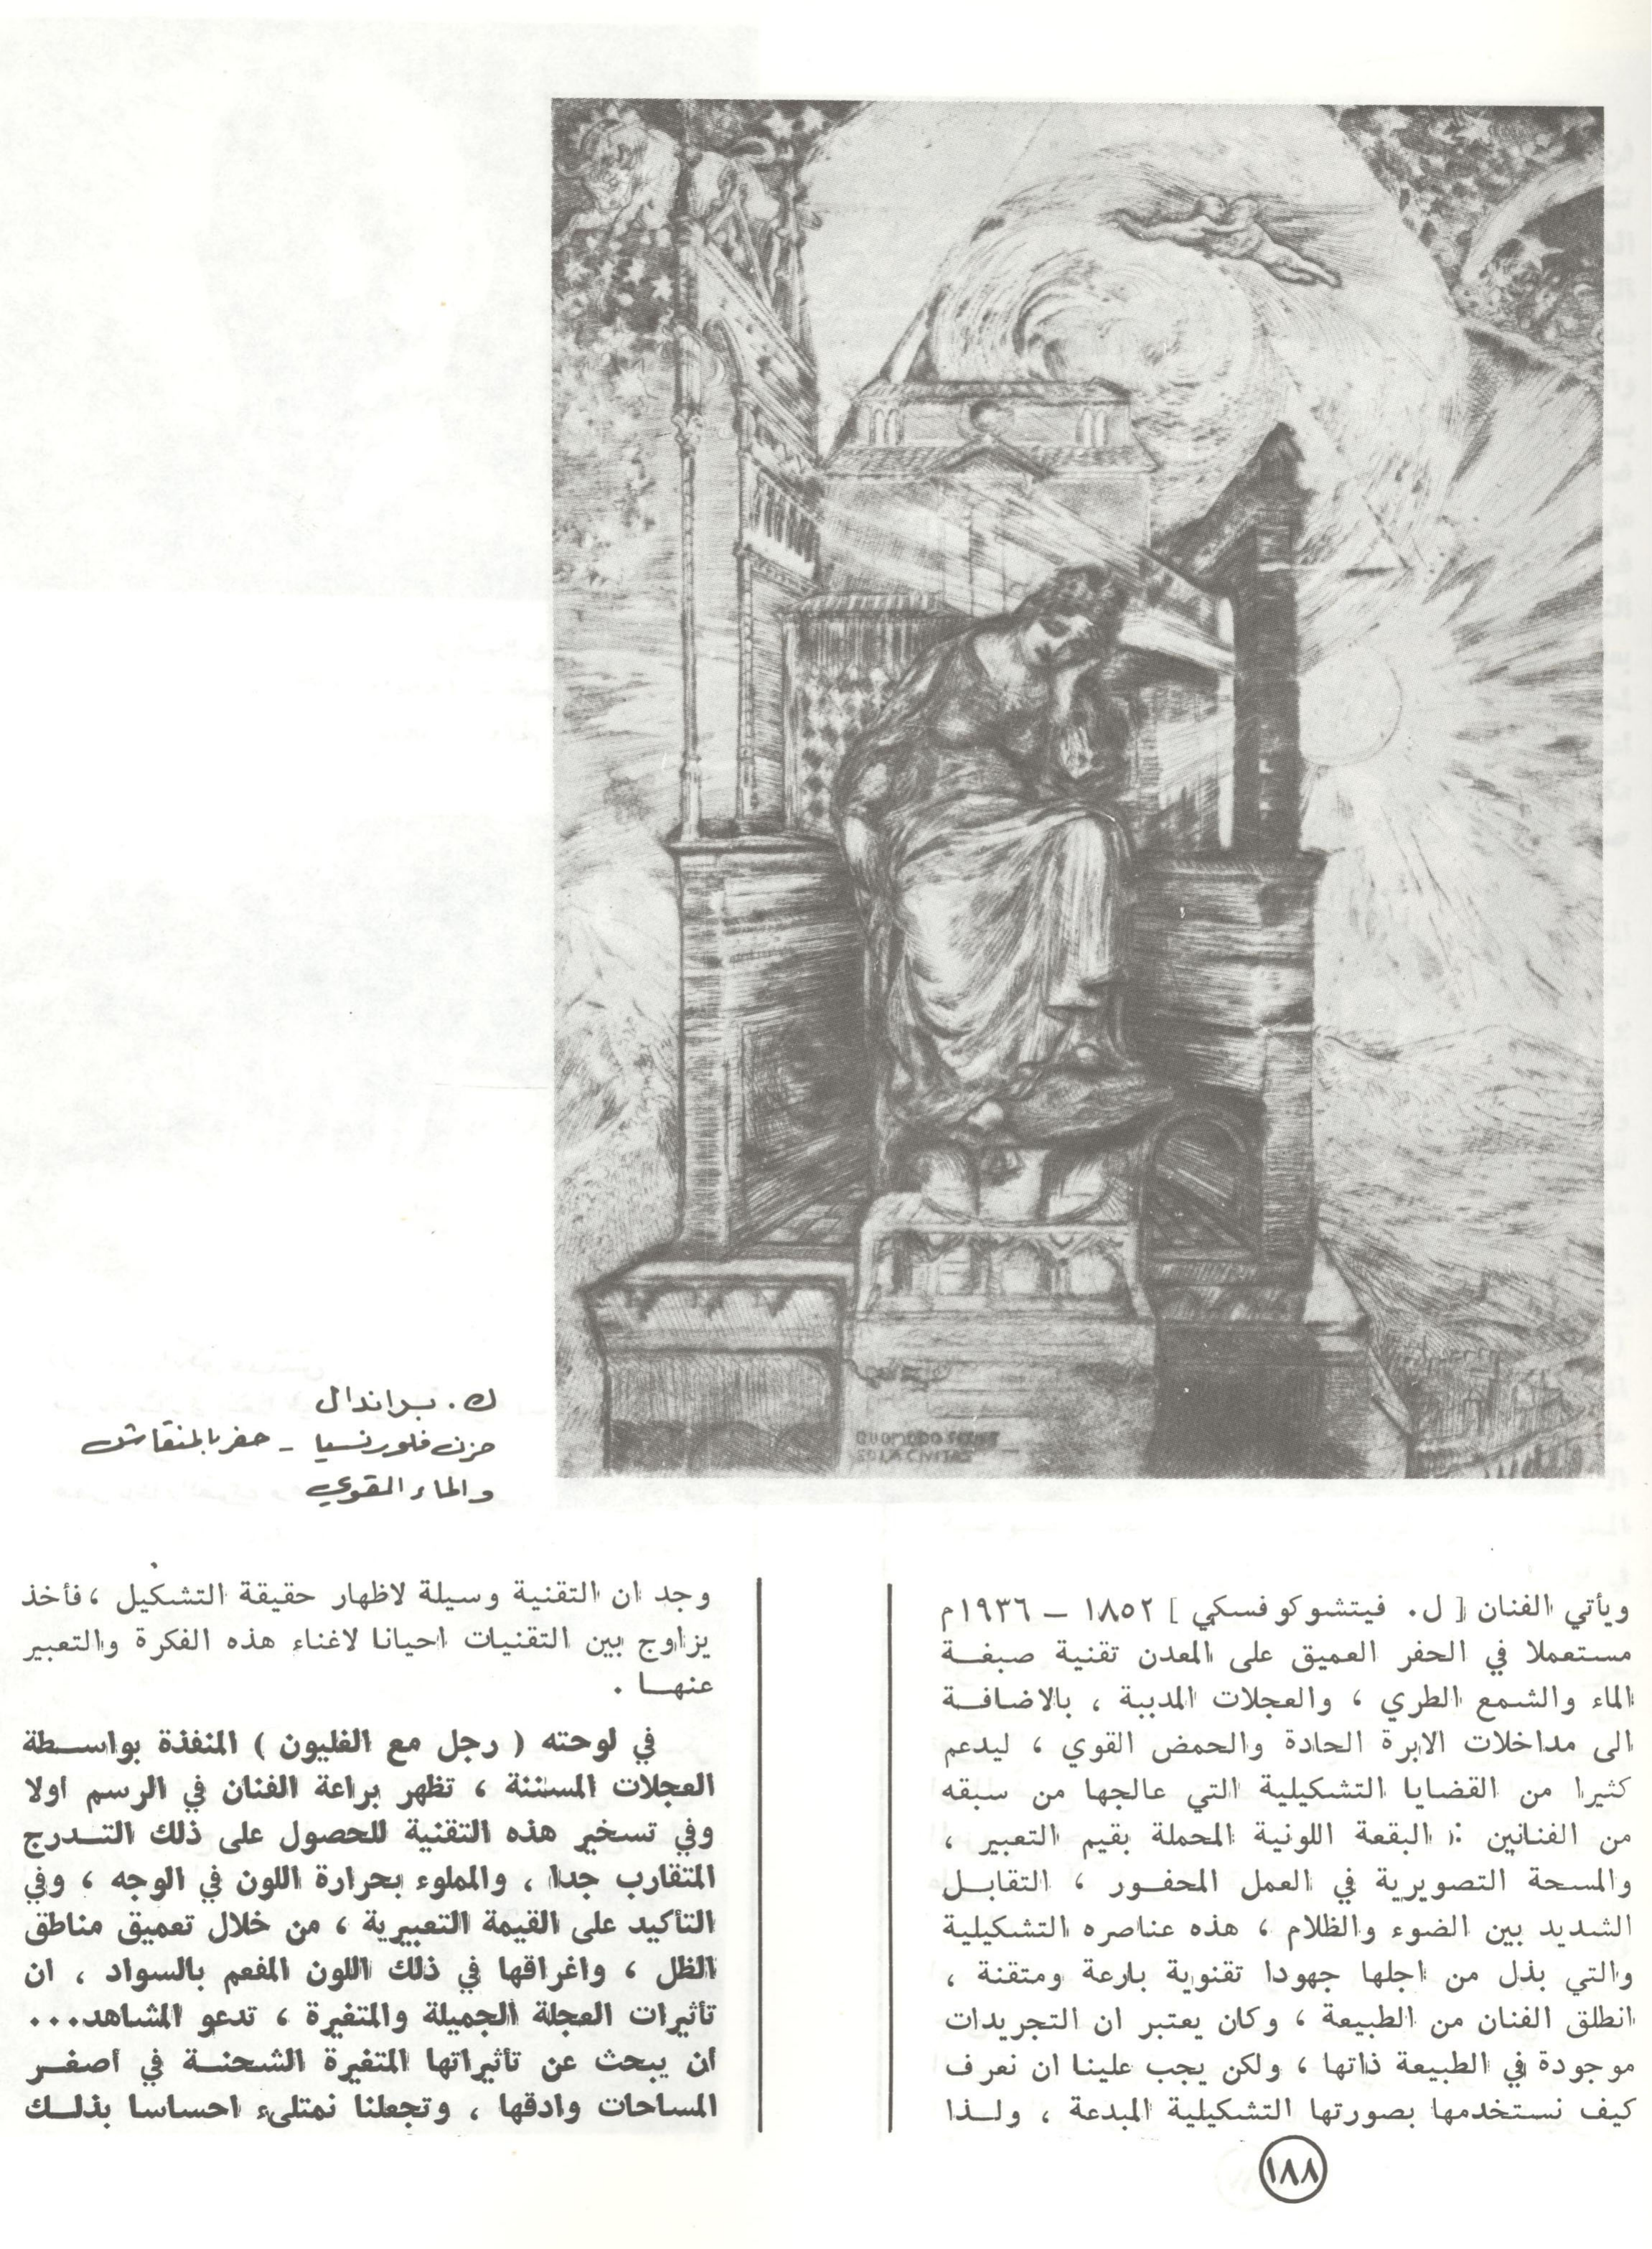 QUOMODO SEDET
SOLA CIVITAS
ك. براندال
حزن فلورنسيا - حفر بالمنقاش
والماء المقوي
ويأتي الفنان [ ل. فيتشوكوفسكي ] ١٨٥٢ - ١٩٣٦م
مستعملا في الحفر العميق على المعدن تقنية صبغة
الماء والشمع الطري ، والعجلات المدببة ، بالاضافة
الى مداخلات الابرة الحادة والحمض القوي ، ليدعم
كثيرا من القضايا التشكيلية التي عالجها من سبقه
من الفنانين : البقعة اللونية المحملة بقيم التعبير ،
والمسحة التصويرية في العمل المحفور ، التقابل
الشديد بين الضوء والظلام ، هذه عناصره التشكيلية
والتي بذل من اجلها جهودا تقنوية بارعة ومتقنة ،
انطلق الفنان من الطبيعة ، وكان يعتبر ان التجريدات
موجودة في الطبيعة ذاتها ، ولكن يجب علينا ان نعرف
كيف نستخدمها بصورتها التشكيلية المبدعة ، ولذا
وجد ان التقنية وسيلة لاظهار حقيقة التشكيل ، فأخذ
يزاوج بين التقنيات احيانا لاغناء هذه الفكرة والتعبير
عنها .
في لوحته ( رجل مع الغليون ) المنفذة بواسطة
العجلات المسننة ، تظهر براعة الفنان في الرسم اولا
وفي تسخير هذه التقنية للحصول على ذلك التدرج
المتقارب جدا ، والمملوء بحرارة اللون في الوجه ، وفي
التأكيد على القيمة التعبيرية ، من خلال تعميق مناطق
الظل ، واغراقها في ذلك اللون المفعم بالسواد ، ان
تأثيرات العجلة الجميلة والمتغيرة ، تدعو المشاهد...
أن يبحث عن تأثيراتها المتغيرة الشحنة في أصغر
المساحات وادقها ، وتجعلنا نمتلىء احساسا بذلك
١٨٨